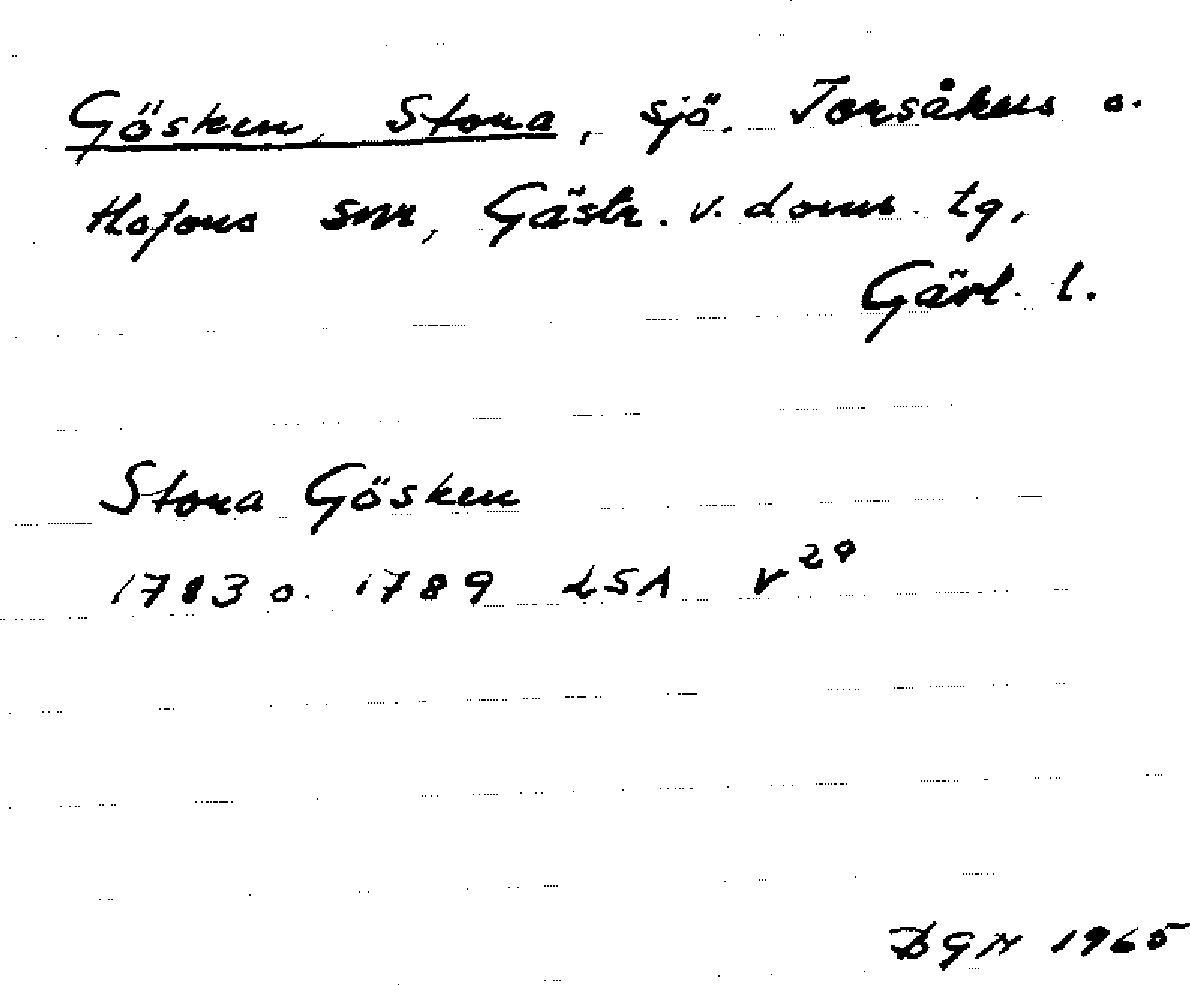 Gösken, Stora, sjö. Torsåkers o.
Hofors snr, Gästr. v. doms. tg,
Gävl. l.
Stora Gösken
1783 o. 1789 LSA V 29
DGN 1965